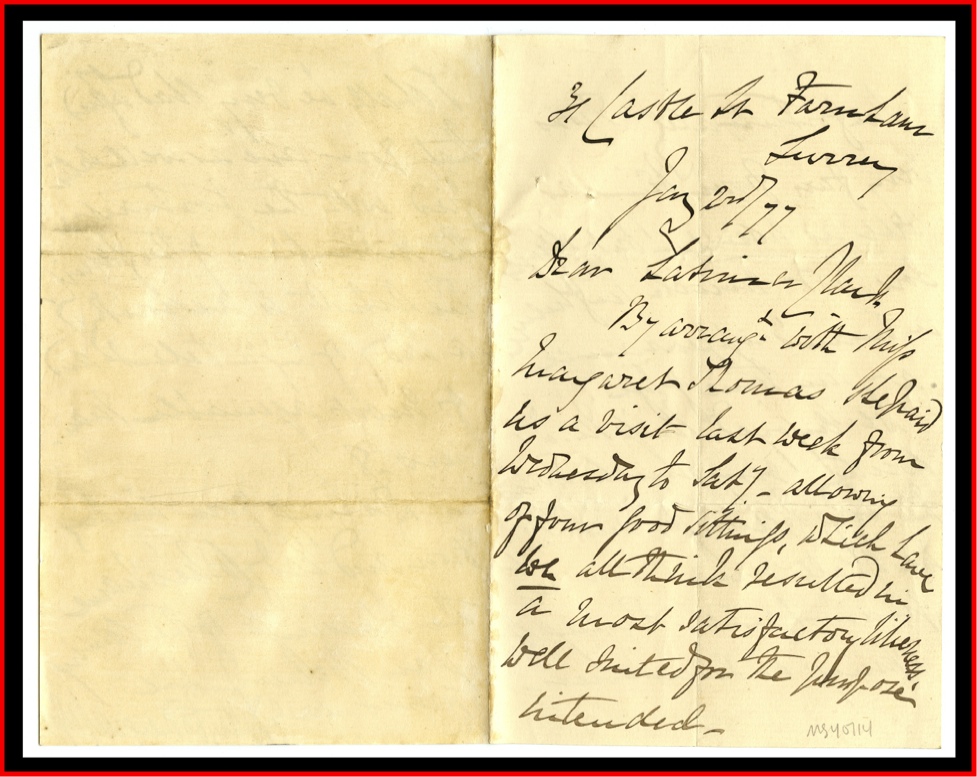 31 Castle St Farnham
Surrey
Jany 23rd/77
Dear Latimer Clark
By arrangt with Miss
Margaret Thomas she paid
us a visit last week from
Wednesday to Saty - allowing
of four good sittings, which have
we all think resulted in
a most satisfactory likeness.
well suited for the purpose
intended -